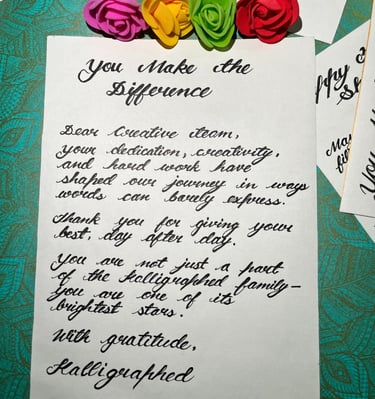 You Make the
Difference
Dear Creative team,
your dedication, creativity,
and hard work have
shaped our journey in ways
words can barely express.
Thank you for giving your
best, day after day.
You are not just a part
of the Kalligraphed family–
you are one of its
brightest stars.
With gratitude,
Kalligraphed